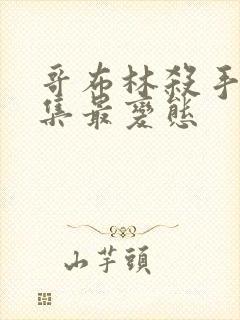 哥布林殺手
集最變態
山芋頭